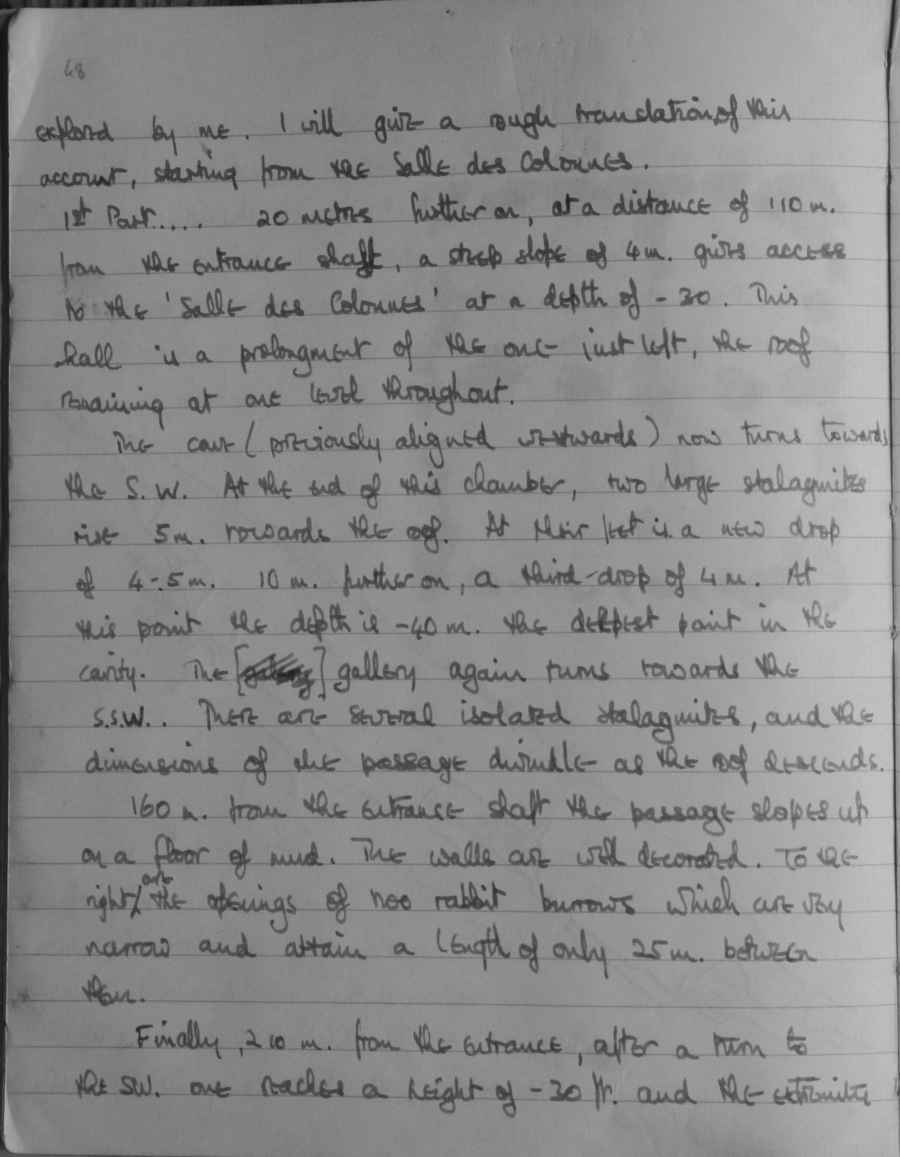 48
explored by me. I will give a rough translation of this
account, starting from the Salle des Colonnes.
1st Part..... 20 metres further on, at a distance of 110 m.
from the entrance shaft, a steep slope of 4 m. gives access
to the 'Salle des Colonnes' at a depth of -30. This
hall is a prolongment of the one just left, the roof
remaining at one level throughout.
The cave (previously aligned westwards) now turns towards
the S.W. At the end of this chamber, two large stalagmites
rise 5m. towards the roof. At their feet is a new drop
of 4-.5m. 10 m. further on, a third-drop of 4 m. At
this point the depth is -40 m. the deepest point in the
cavity. The [ ] gallery again turns towards the
S.S.W.. There are several isolated stalagmites, and the
dimensions of the passage dwindle as the roof descends.
160 m. from the entrance shaft the passage slopes up
on a floor of mud. The walls are well decorated. To the
right are the openings of two rabbit burrows which are very
narrow and attain a length of only 25 m. between
them.
Finally, 210 m. from the entrance, after a turn to
the SW. one reaches a height of -30 ft. and the extremity